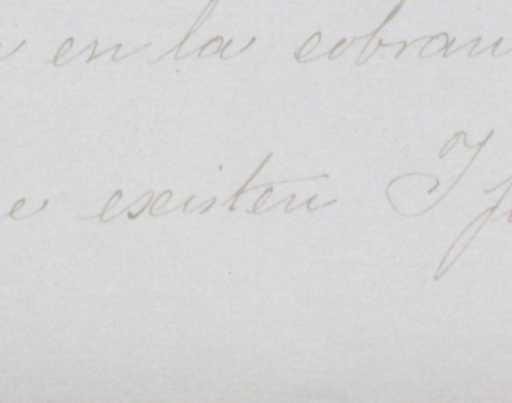 en la cobran
e existen Y